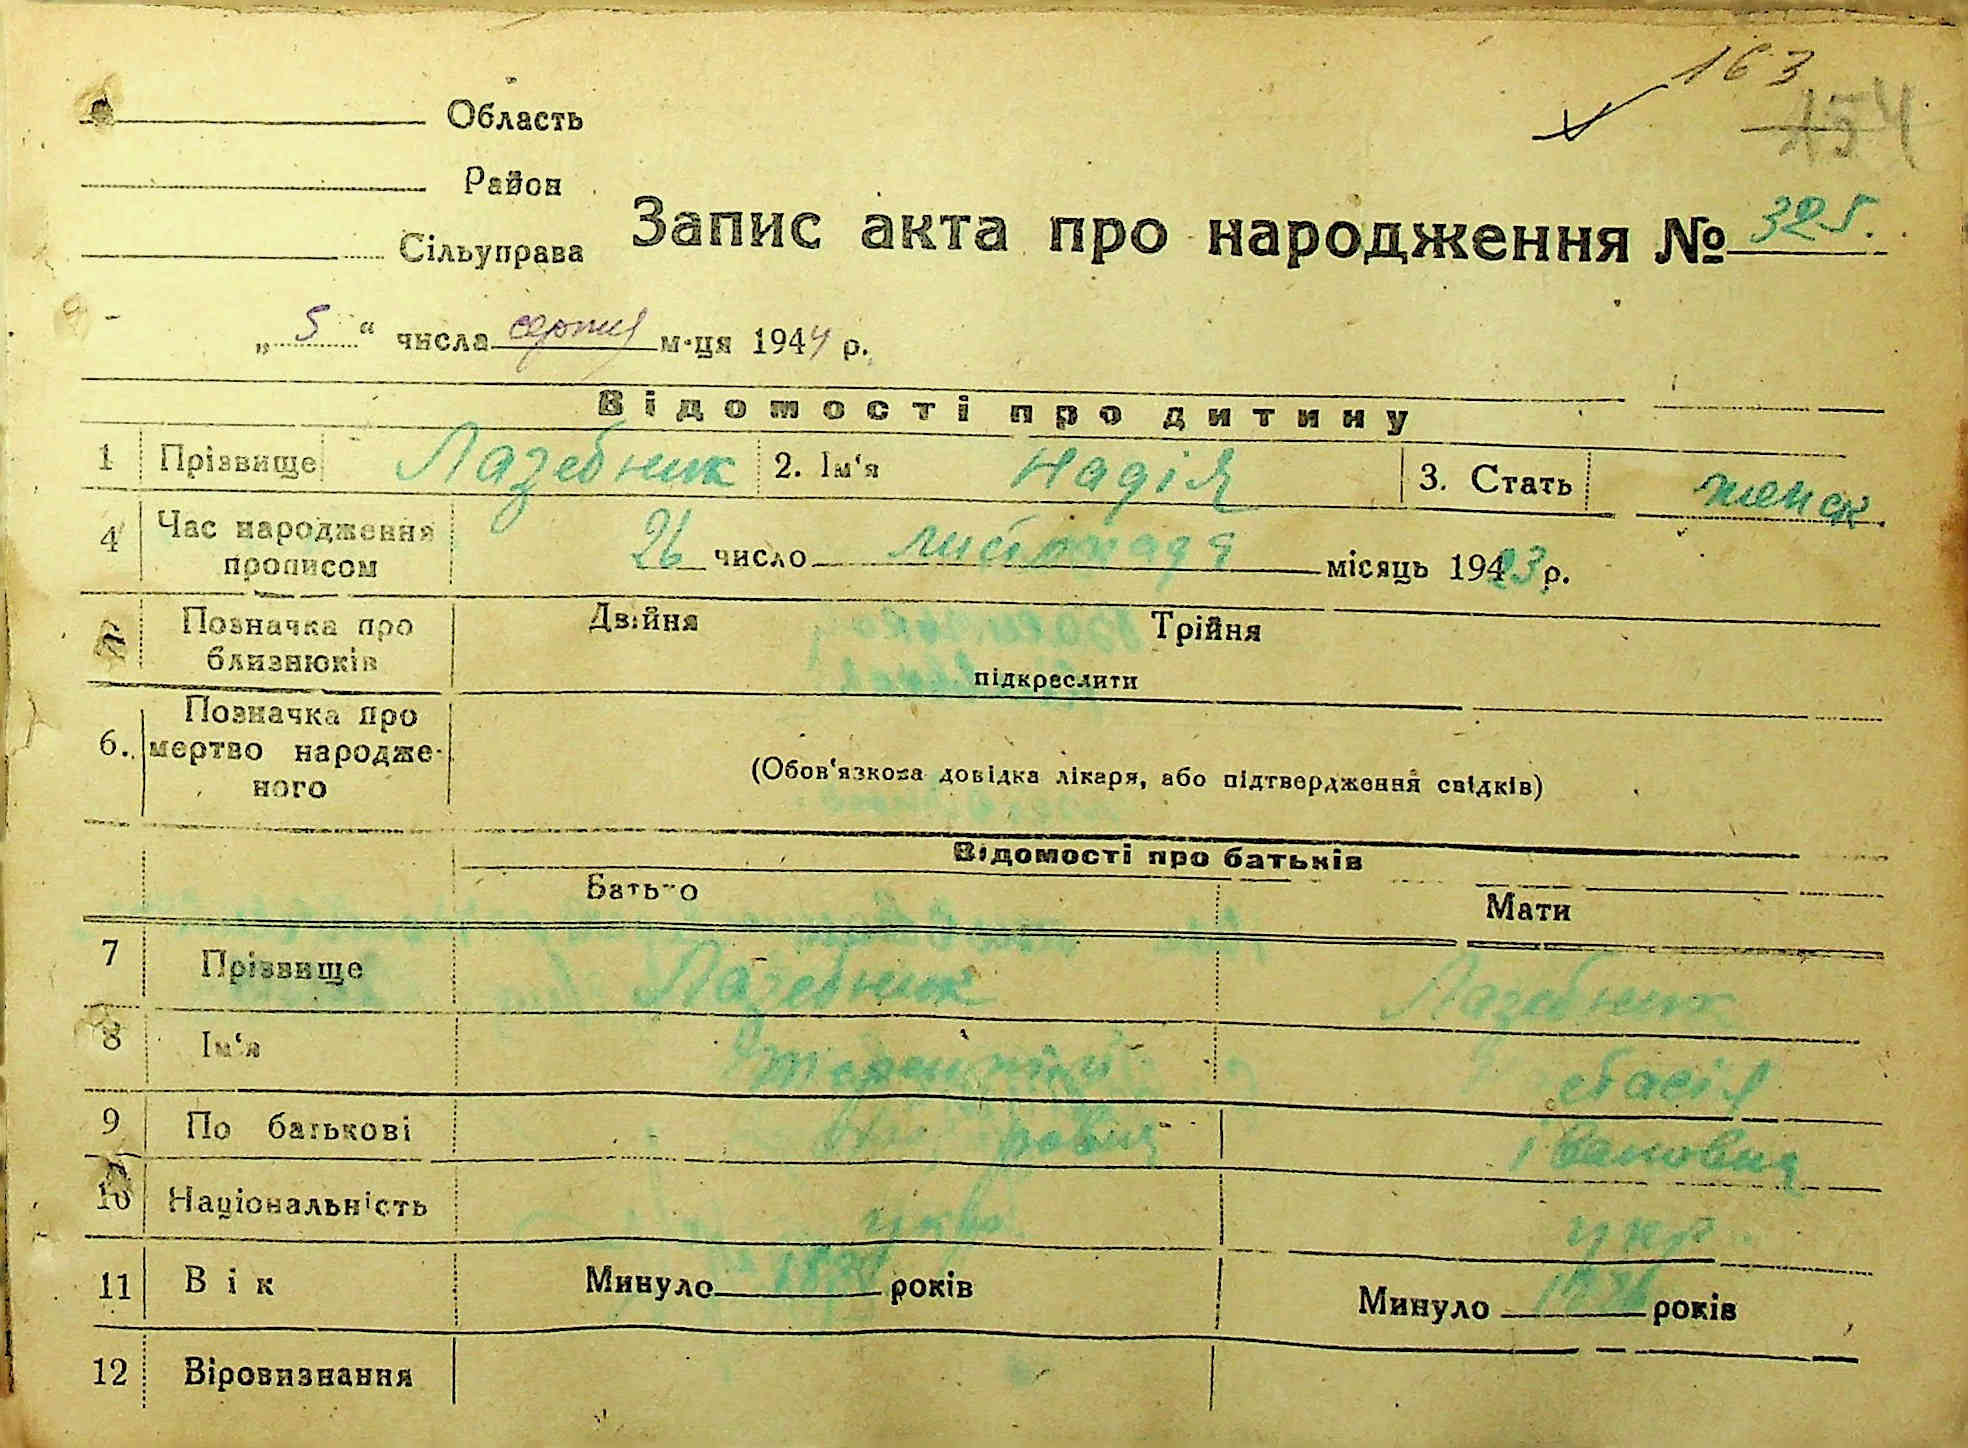 163
154
Область
Район
Сільуправа
Запис акта про народження № 325.
„5“ числа серпня м-ця 1944 р.
Відомості про дитину
1 Прізвище Лазебник 2. Ім‘я Надія 3. Стать женск
4 Час народження прописом 26 число листопада місяць 1923 р.
Позначка про близнюків Двійня Трійня
підкреслити
6. Позначка про мертво народженого
(Обов‘язкова довідка лікаря, або підтвердження свідків)
Відомості про батьків
Батько Мати
7 Прізвище Лазебник Лазебник
8 Ім‘я Терентій стасія
9 По батькові Івановна
10 Національність укр. укр.
11 Вік Минуло років Минуло років
12 Віровизнання